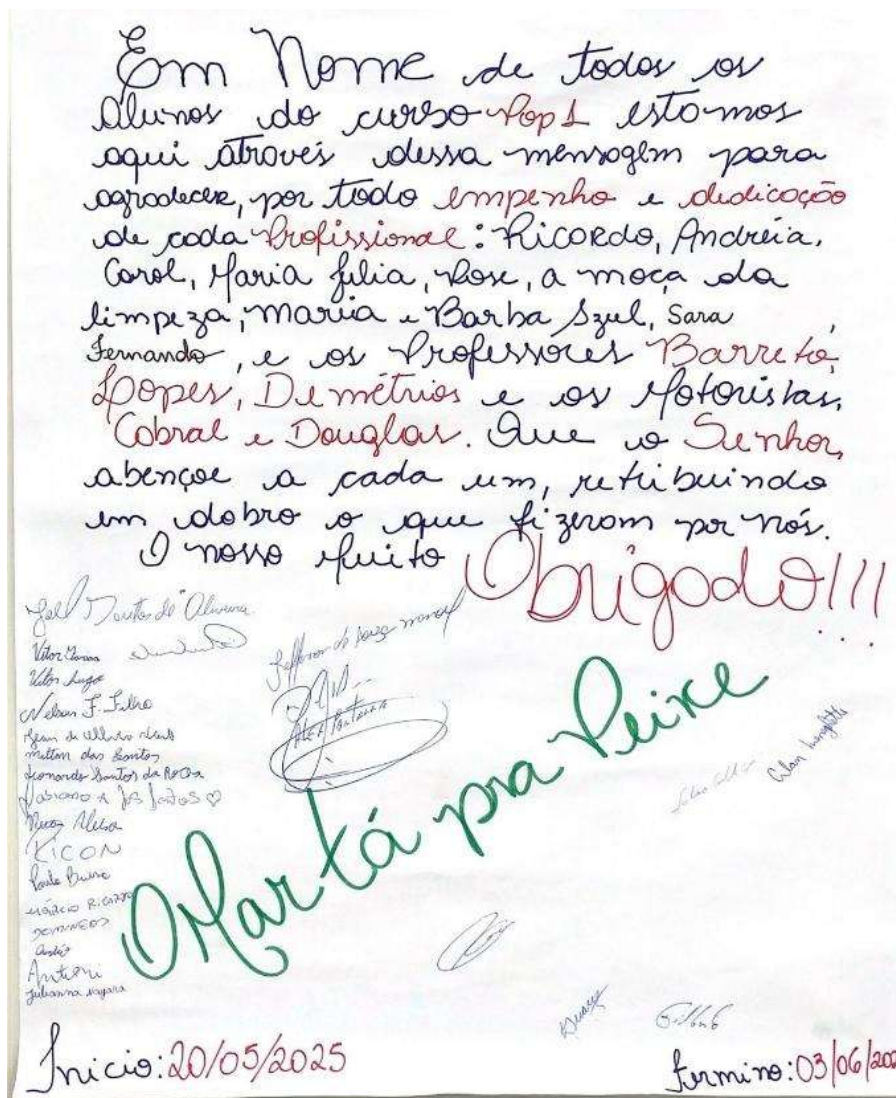 Em Nome de todos os
Alunos do curso Pop1 estamos
aqui através dessa mensagem para
agradecer, por todo empenho e dedicação
de cada Profissional: Ricardo, Andréia,
Carol, Maria Julia, Rose, a moça da
limpeza, Maria e Barba Azul, Sara,
Fernando, e os Professores Barreto,
Lopes, Demétrios e os Motoristas,
Cabral e Douglas. Que o Senhor,
abençoe a cada um, retribuindo
em dobro o que fizeram por nós.
O nosso Muito Obrigado!!!
de Oliveira
Vitor
Vitor Hugo
Nelson F. Filho
Milton dos Santos
Leonardo Santos da Rocha
KICON
Paulo
DOMINGOS
André
Antoni
Julianna Nayara
O Mar tá pra Peixe
Início: 20/05/2025
Termino: 03/06/202